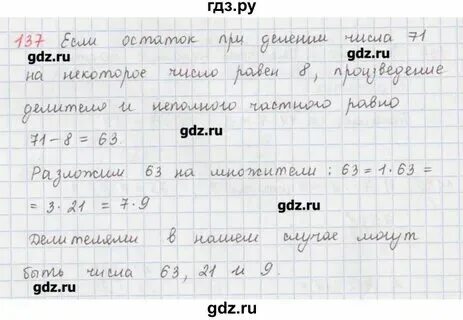 гдз.ру
137 Если остаток при делении числа 71
gdz.ru gdz.ru
на некоторое число равен 8, произведение
делителя и неполного частного равно
gdz.ru
71 - 8 = 63.
gdz.ru
Разложим 63 на множители: 63 = 1 · 63 =
gdz.ru
= 3 · 21 = 7 · 9
gdz.ru
Делителями в нашем случае могут
быть числа 63, 21 и 9.
gdz.ru gdz.ru